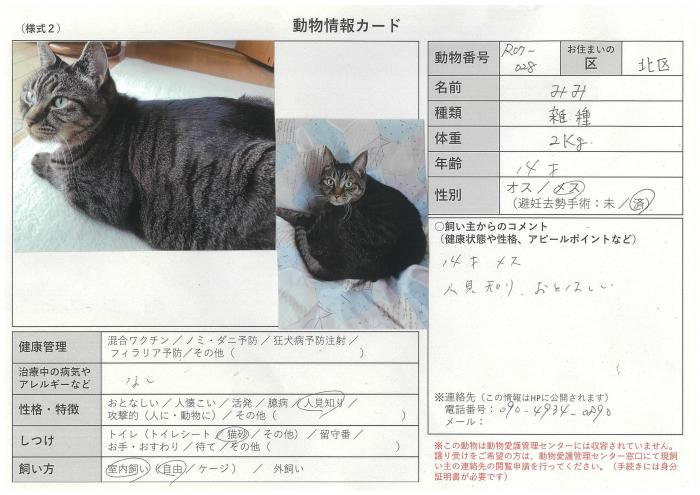 （様式２）
動物情報カード
動物番号 R07-028 お住まいの区 北区
名前 みみ
種類 雑種
体重 2Kg
年齢 14才
性別 オス／メス
（避妊去勢手術：未／済）
○飼い主からのコメント
（健康状態や性格、アピールポイントなど）
14才 メス
人見知り、おとなしい
健康管理 混合ワクチン／ノミ・ダニ予防／狂犬病予防注射／
フィラリア予防／その他（ ）
治療中の病気や
アレルギーなど なし
性格・特徴 おとなしい／人懐こい／活発／臆病／人見知り／
攻撃的（人に・動物に）／その他（ ）
しつけ トイレ（トイレシート／猫砂／その他）／留守番／
お手・おすわり／待て／その他（ ）
飼い方 室内飼い（自由／ケージ） ／ 外飼い
※連絡先（この情報はHPに公開されます）
電話番号：090-4934-0890
メール：
※この動物は動物愛護管理センターには収容されていません。
譲り受けをご希望の方は、動物愛護管理センター窓口にて現飼
い主の連絡先の閲覧申請を行ってください。（手続きには身分
証明書が必要です）